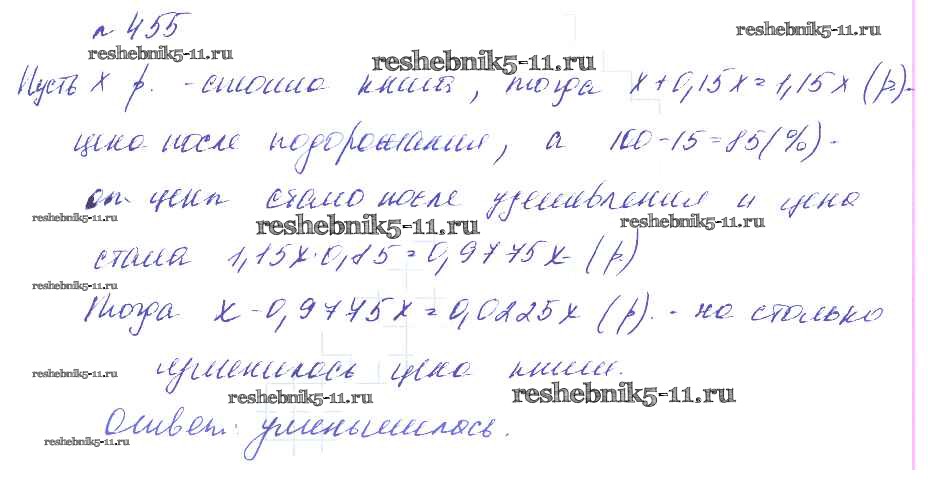 № 455
reshebnik5-11.ru
reshebnik5-11.ru
reshebnik5-11.ru
Пусть x р. - стоила книга, тогда x + 0,15x = 1,15x (р.) -
цена после подорожания, а 100 - 15 = 85 (%) -
от цены стало после удешевления и цена
reshebnik5-11.ru
reshebnik5-11.ru
reshebnik5-11.ru
стала 1,15x · 0,85 = 0,9775x (р.)
reshebnik5-11.ru
Тогда x - 0,9775x = 0,0225x (р.) - на столько
изменилась цена книги.
reshebnik5-11.ru
reshebnik5-11.ru
reshebnik5-11.ru
Ответ: уменьшилась.
reshebnik5-11.ru